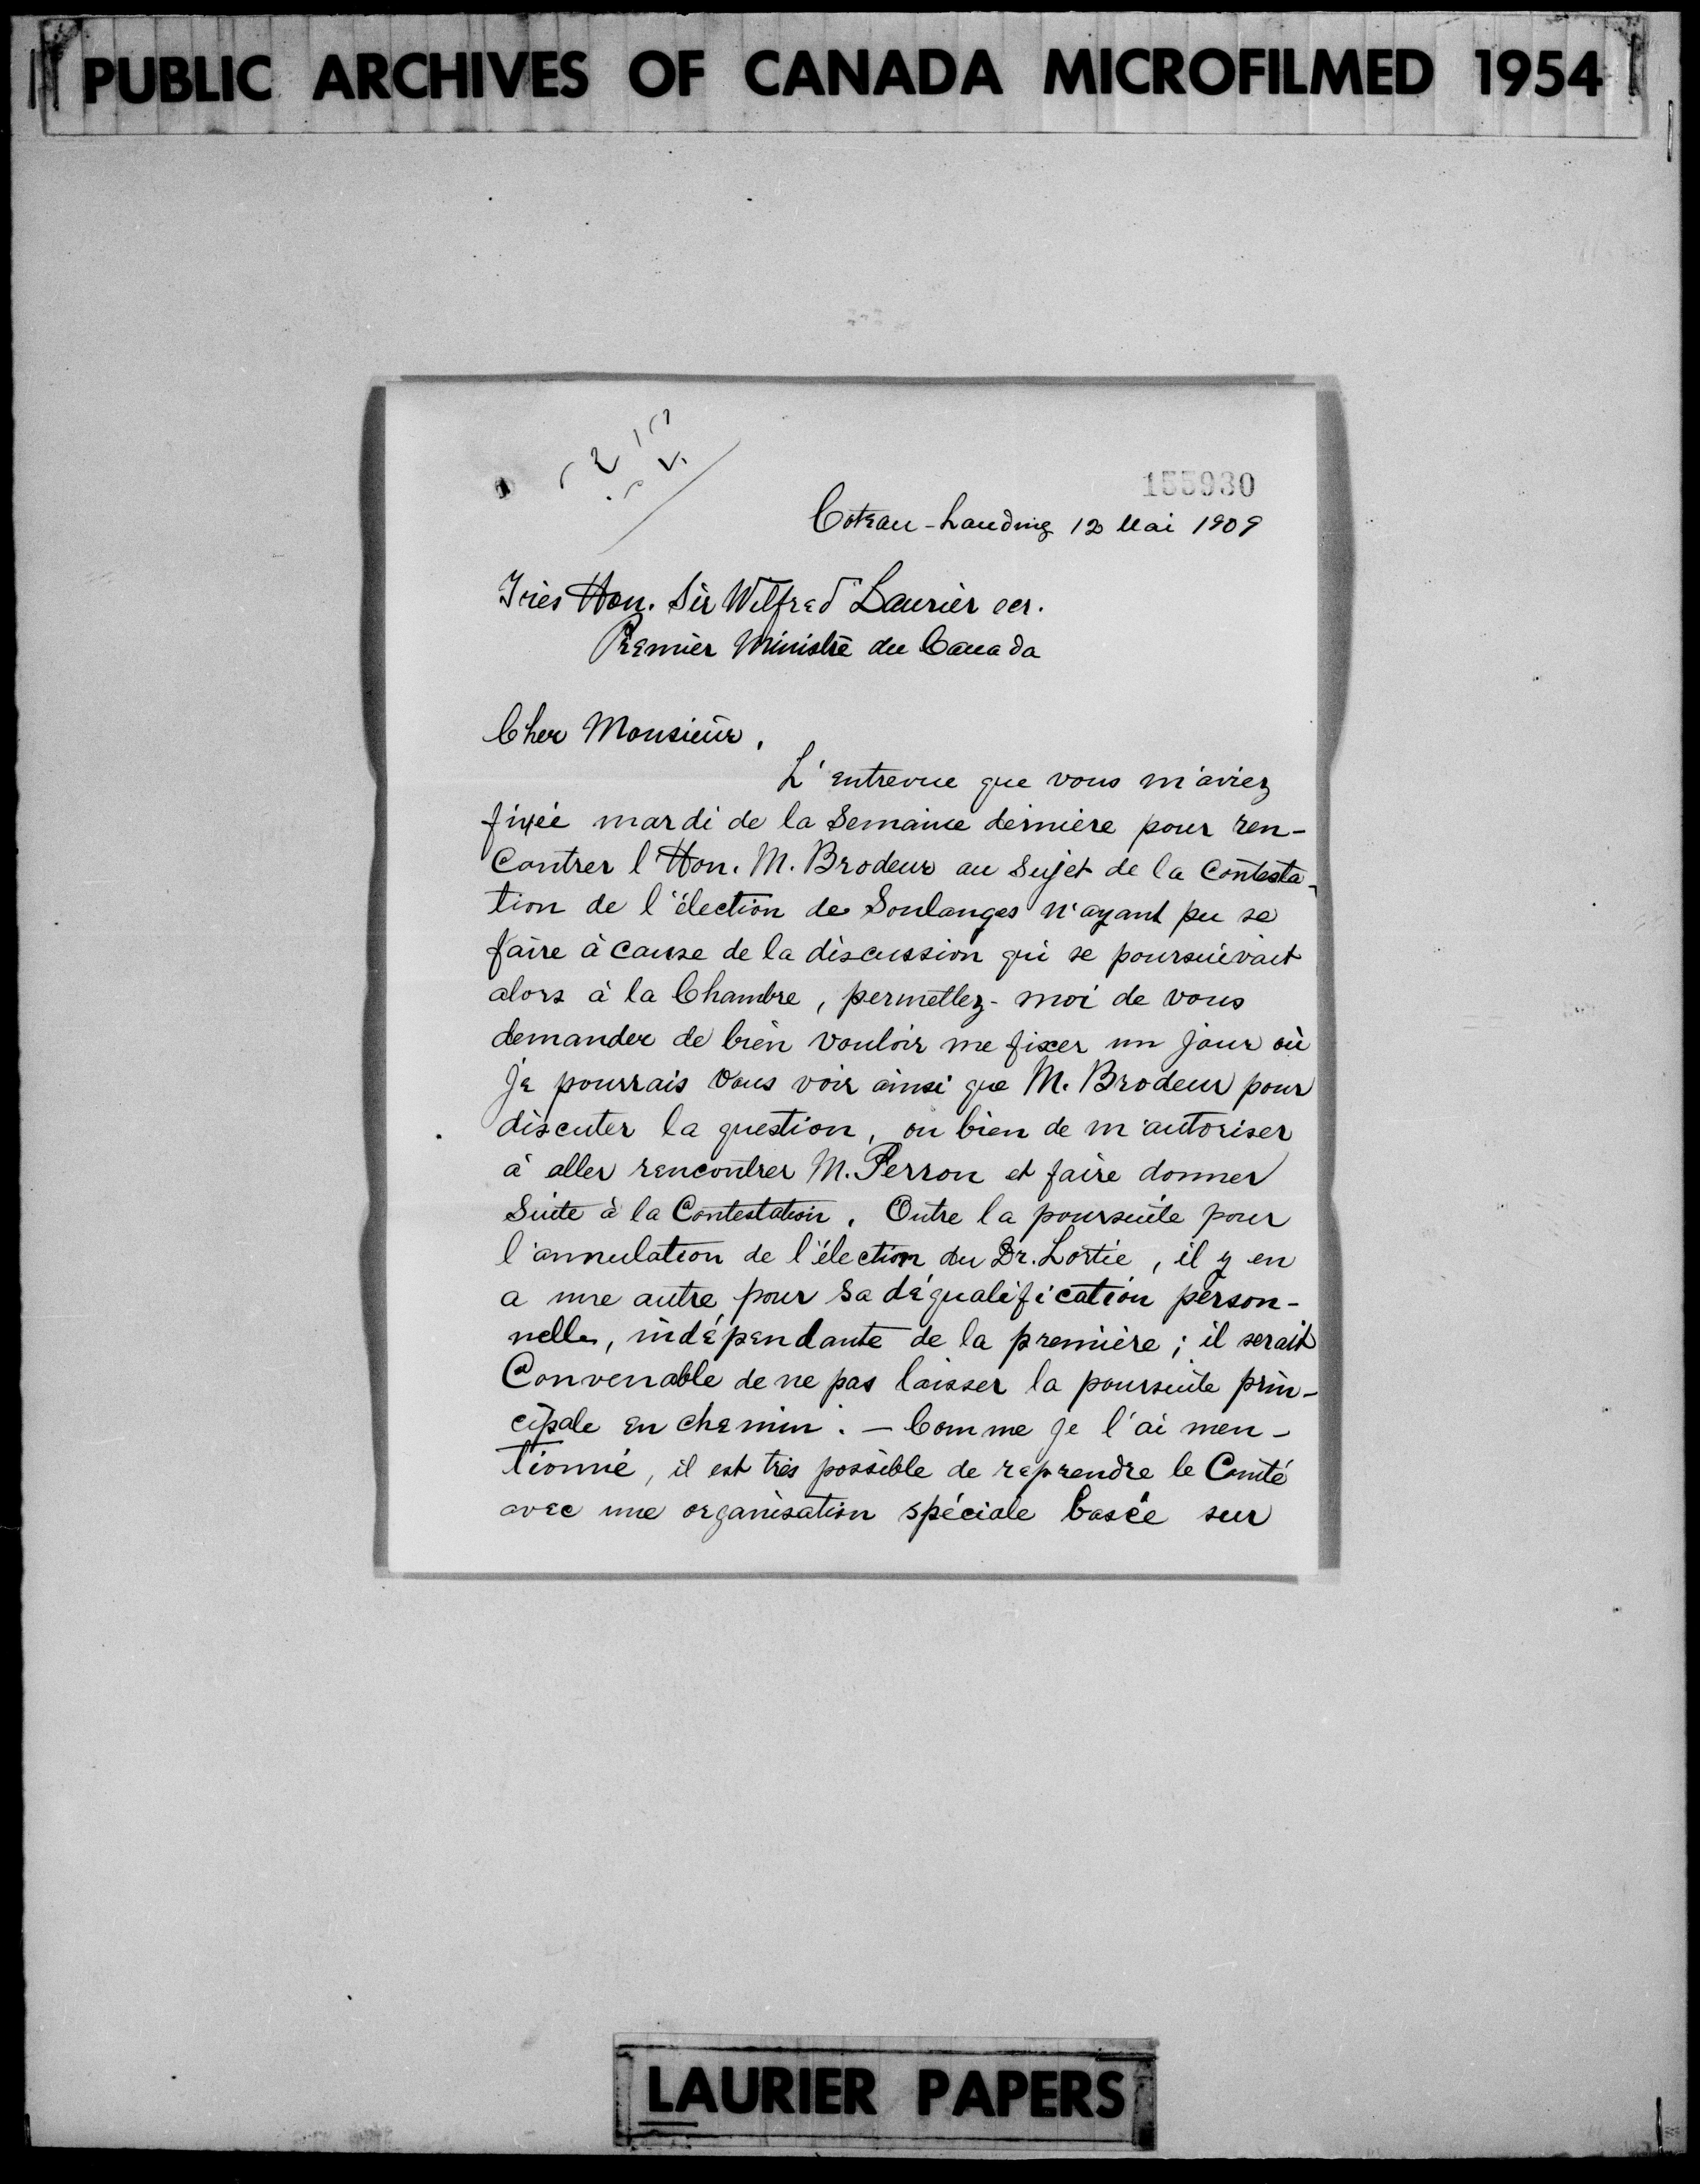 PUBLIC ARCHIVES OF CANADA MICROFILMED 1954
155930
Coteau-Landing 12 Mai 1909
Très Hon. Sir Wilfred Laurier ecr.
Premier Ministre du Canada
Cher Monsieur,
L'entrevue que vous m'aviez
fixée mardi de la Semaine dernière pour ren-
contrer l'Hon. M. Brodeur au Sujet de la Contesta-
tion de l'élection de Soulanges n'ayant pu se
faire à cause de la discussion qui se poursuivait
alors à la Chambre, permettez-moi de vous
demander de bien vouloir me fixer un jour où
je pourrais vous voir ainsi que M. Brodeur pour
discuter la question, ou bien de m'autoriser
à aller rencontrer M. Perron et faire donner
Suite à la Contestation. Outre la poursuite pour
l'annulation de l'élection du Dr. Lortie, il y en
a une autre pour sa déqualification person-
nelle, indépendante de la première; il serait
Convenable de ne pas laisser la poursuite prin-
cipale en chemin. - Comme je l'ai men-
tionné, il est très possible de reprendre le Comté
avec une organisation spéciale basée sur
LAURIER PAPERS